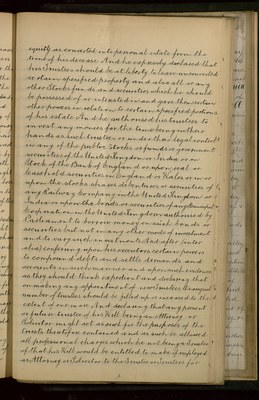 equity as converted into personal estate from the
time of his decease And he expressly declared that
his Trustees should be at liberty to leave unconverted
or retain specified property and also all or any
other Stocks funds and securities which he should
be possessed of or interested in and gave them certain
other powers in relation to certain specified portions
of his estate And he authorised his Trustees to
invest any moneys for the time being in their
hands as his Trustees or under their legal control
in any of the public Stocks or funds or government
securities of the United Kingdom or India or in
Stock of the Bank of England or upon real or
leasehold securities in England or Wales or in or
upon the stocks shares debentures or securities of
any Railway Company in the United Kingdom or
India or upon the bonds or securities of any Municipal
Corporation in the United Kingdom authorised by
Parliament to borrow money on such bonds or
securities but not in any other mode of investment
and to vary such investments And after (inter
alia) conferring upon his executors certain powers
to compound debts and settle demands and
accounts in such manner and upon such evidence
as they should think expedient and declaring that
on making any appointment of new Trustees the
number of Trustees should be filled up or increased to the
extent of one or more And declaring that any present
or future Trustee of his Will being an Attorney or
Solicitor might act as such for the purposes of the
trusts therein contained and as such be allowed
all professional charges which he not being a Trustee
of that his Will would be entitled to make if employed
as Attorney or Solicitor to the Trustee or Trustees for